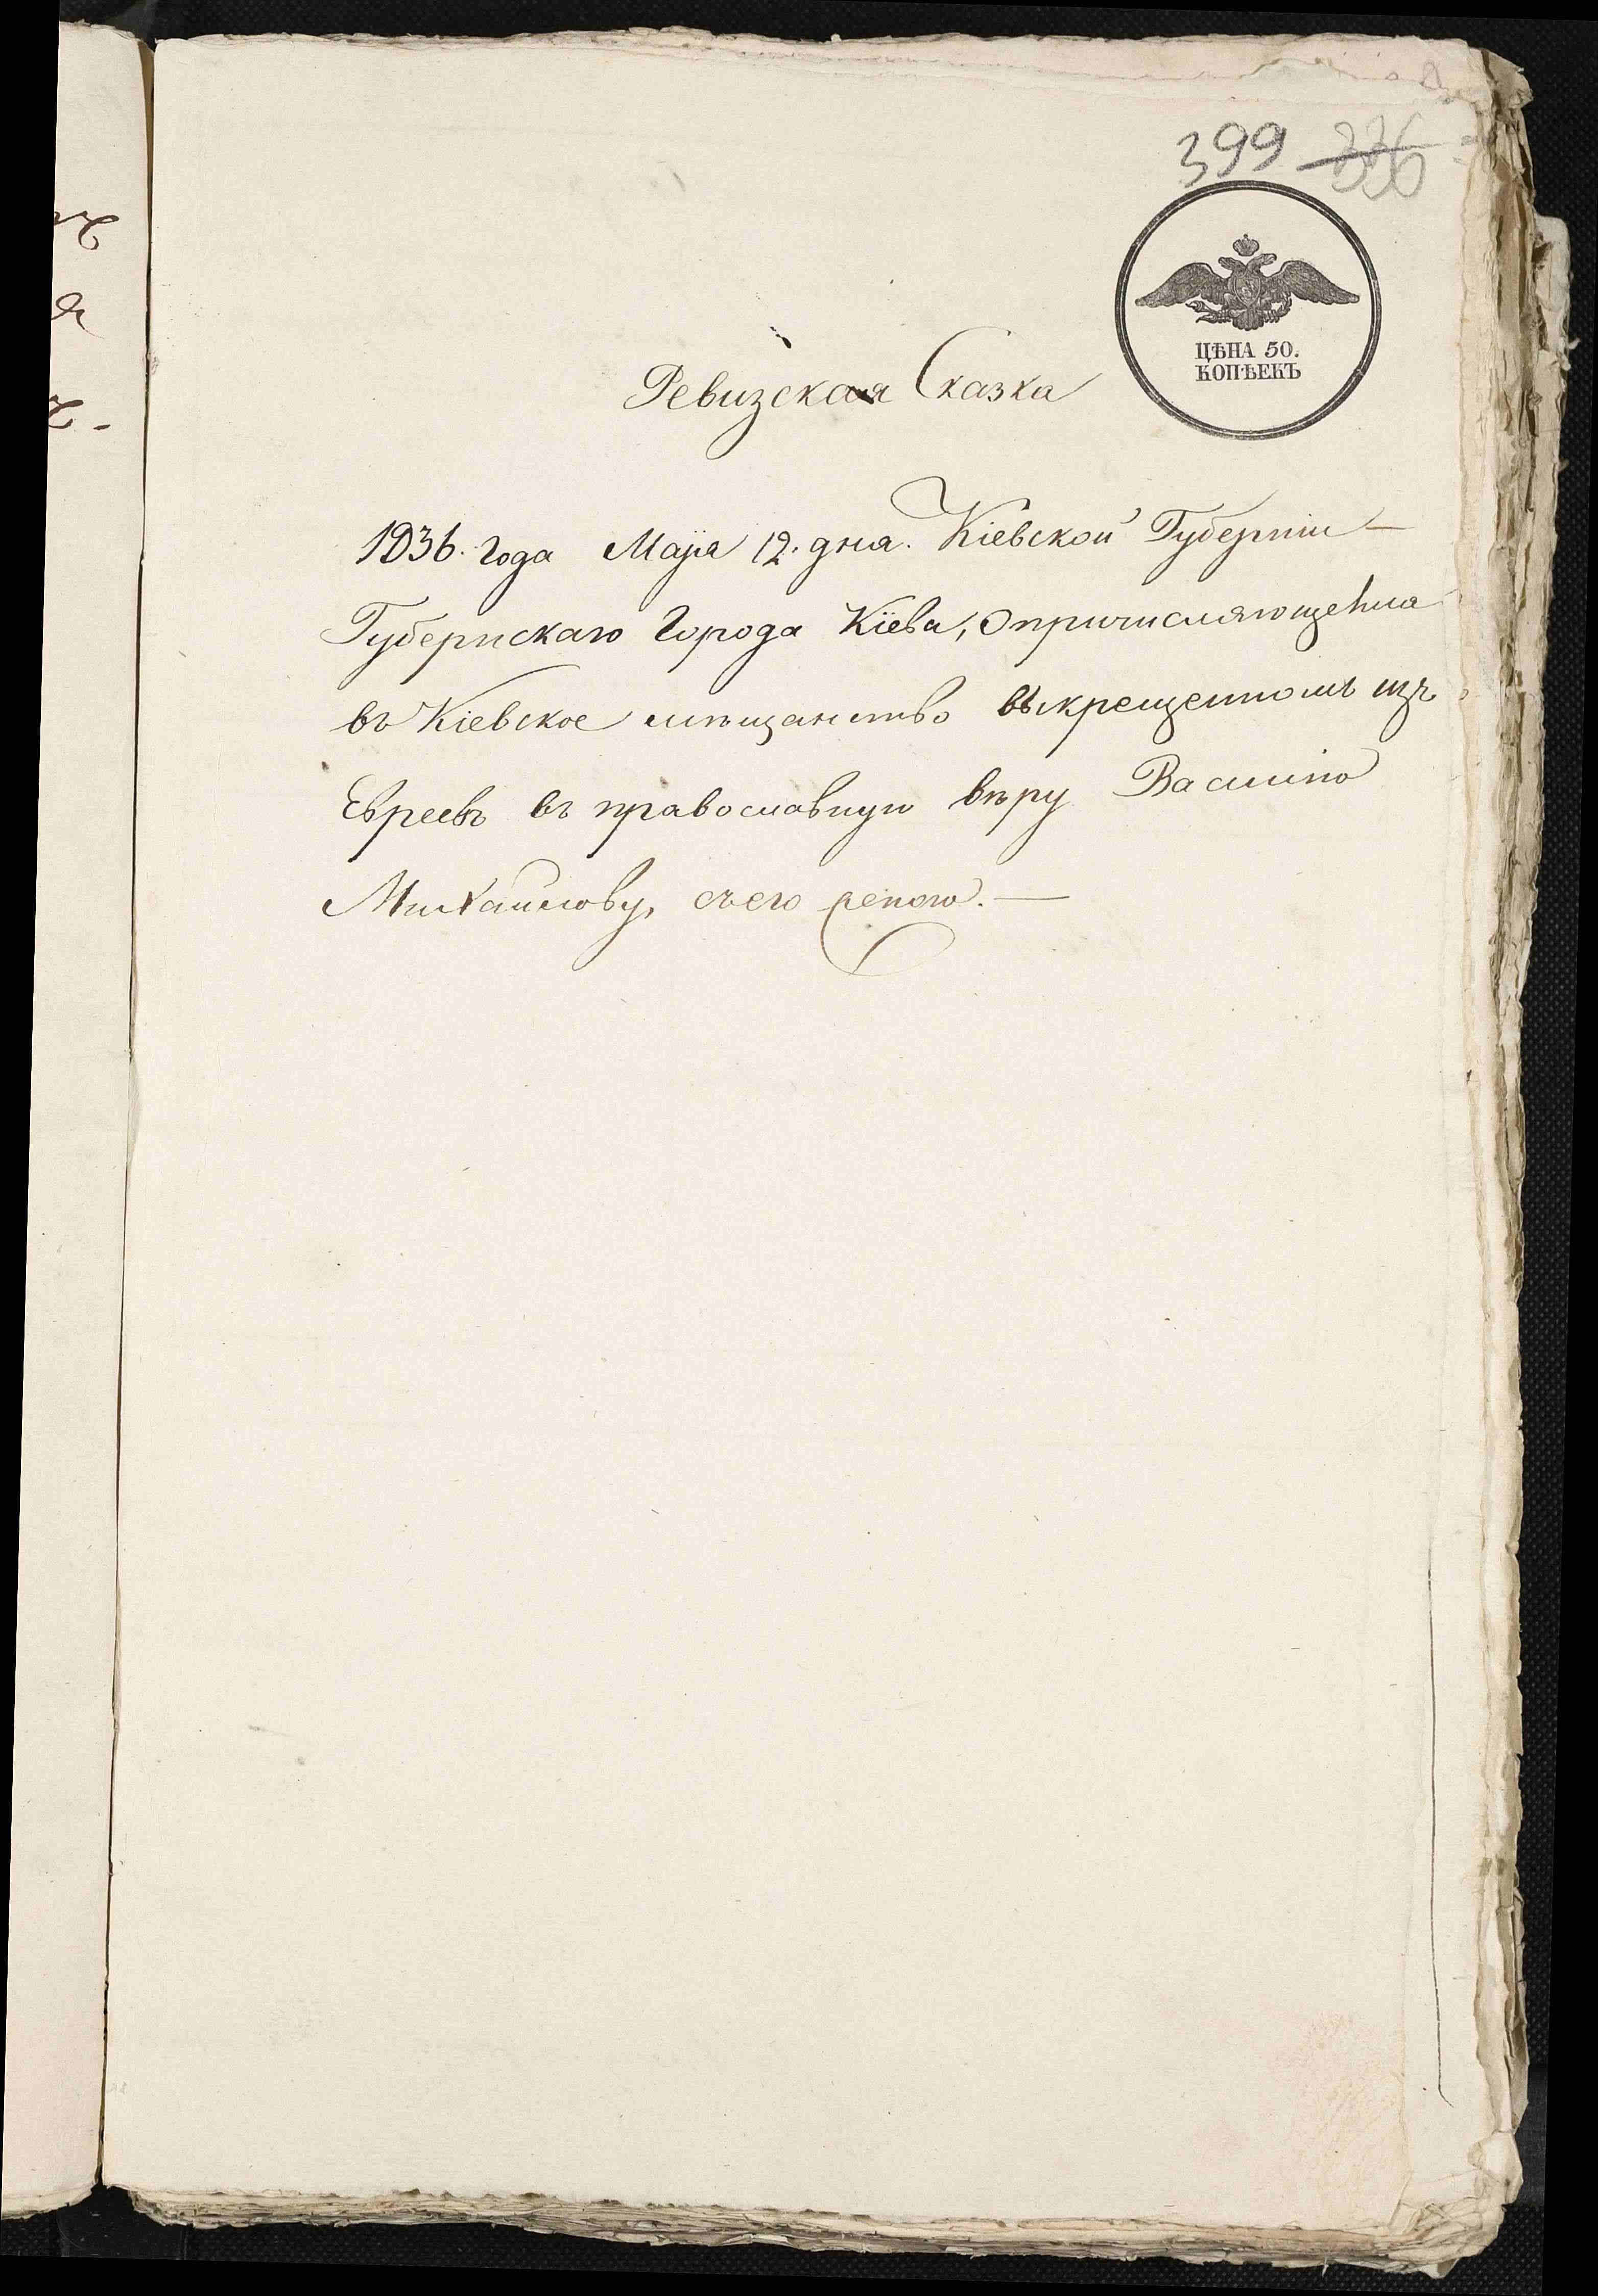 399 336
ЦѢНА 50.
КОПѢЕКЪ
Ревизская Сказка
1836. года Маiя 12. дня. Кіевской Губерніи —
Губернскаго города Кіева, о причисляющемся
въ Кіевское мѣщанство выкрещенномъ изъ
Евреевъ въ православную вѣру Василію
Михайлову, съ его женою. —